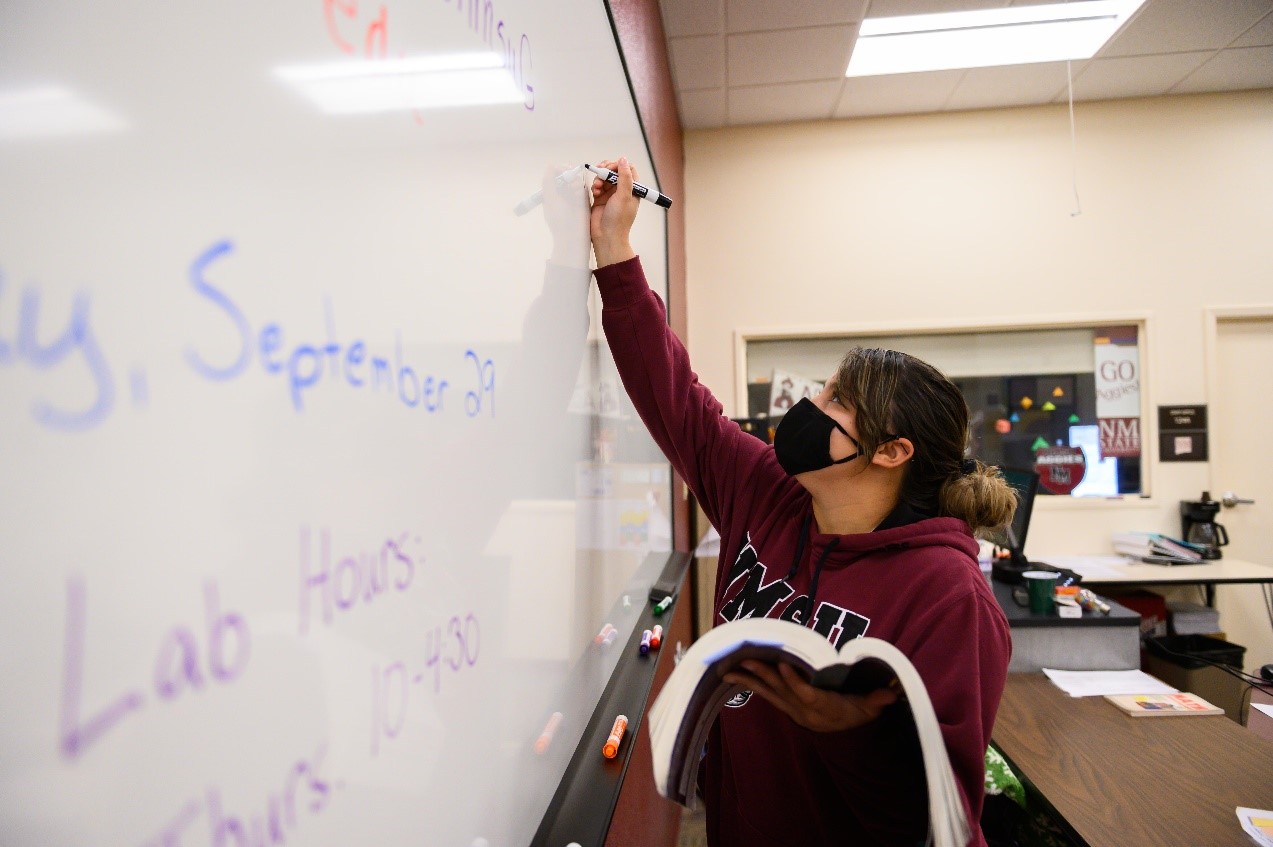 ed,
y, September 29
Lab Hours:
10-4:30
Thurs:
NMSU
GO
Aggies
NM
STATE
AGGIES